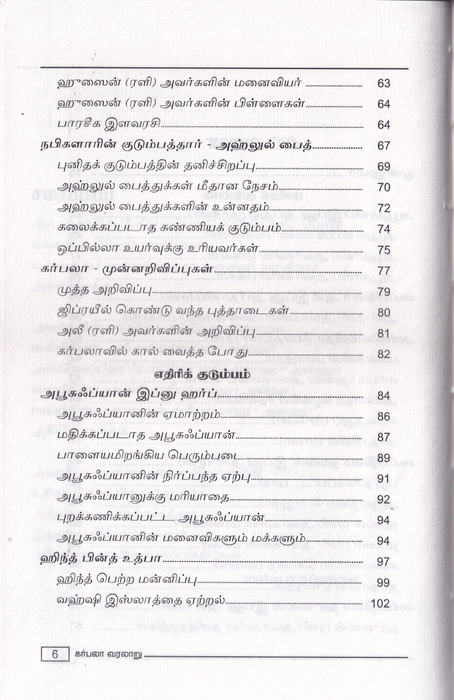 ஹுஸைன் (ரளி) அவர்களின் மனைவியர் 63
ஹுஸைன் (ரளி) அவர்களின் பிள்ளைகள் 64
பாரசீக இளவரசி 64
நபிகளாரின் குடும்பத்தார் - அஹ்லுல் பைத் 67
புனிதக் குடும்பத்தின் தனிச்சிறப்பு 69
அஹ்லுல் பைத்துக்கள் மீதான நேசம் 70
அஹ்லுல் பைத்துக்களின் உன்னதம் 72
கலைக்கப்படாத கண்ணியக் குடும்பம் 74
ஒப்பில்லா உயர்வுக்கு உரியவர்கள் 75
கர்பலா - முன்னறிவிப்புகள் 77
முத்த அறிவிப்பு 79
ஜிப்ரயீல் கொண்டு வந்த புத்தாடைகள் 80
அலீ (ரளி) அவர்களின் அறிவிப்பு 81
கர்பலாவில் கால் வைத்த போது 82
எதிரிக் குடும்பம்
அபூசுஃப்யான் இப்னு ஹர்ப் 84
அபூசுஃப்யானின் ஏமாற்றம் 86
மதிக்கப்படாத அபூசுஃப்யான் 87
பாளையமிறங்கிய பெரும்படை 89
அபூசுஃப்யானின் நிர்ப்பந்த ஏற்பு 91
அபூசுஃப்யானுக்கு மரியாதை 92
புறக்கணிக்கப்பட்ட அபூசுஃப்யான் 94
அபூசுஃப்யானின் மனைவிகளும் மக்களும் 94
ஹிந்த் பின்த் உத்பா 97
ஹிந்த் பெற்ற மன்னிப்பு 99
வஹ்ஷி இஸ்லாத்தை ஏற்றல் 102
6 கர்பலா வரலாறு